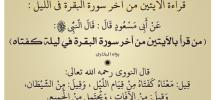 قراءة الآيتين من آخر سورة البقرة في الليل :
عَنْ أَبِي مَسْعُودٍ قَالَ : قَالَ النَّبِيُّ ﷺ :
(من قرأ بالآيتين من آخر سورة البقرة في ليلة كفتاه)
قال النووي رحمه الله تعالى:
قِيلَ: مَعْنَاهُ كَفَتَاهُ مِنْ قِيَامِ اللَّيْلِ ، وَقِيلَ: مِنْ الشَّيْطَانِ،
وَقِيلَ: مِنْ الْآفَاتِ ، وَيَحْتَمِلُ مِنْ الْجَمِيعِ.